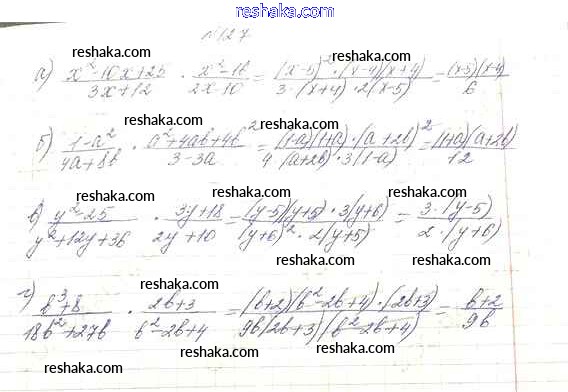 reshaka.com
№127
reshaka.com reshaka.com reshaka.com
а) (x²-10x+25)/(3x+12) · (x²-16)/(2x-10) = ((x-5)²·(x-4)(x+4))/(3·(x+4)·2(x-5)) = ((x-5)(x-4))/6
reshaka.com reshaka.com reshaka.com
б) (1-a²)/(4a+8b) · (a²+4ab+4b²)/(3-3a) = ((1-a)(1+a)·(a+2b)²)/(4·(a+2b)·3(1-a)) = ((1+a)(a+2b))/12
reshaka.com reshaka.com reshaka.com
в) (y²-25)/(y²+12y+36) · (3y+18)/(2y+10) = ((y-5)(y+5)·3(y+6))/((y+6)²·2(y+5)) = (3·(y-5))/(2·(y+6))
reshaka.com reshaka.com reshaka.com
г) (b³+8)/(18b²+27b) · (2b+3)/(b²-2b+4) = ((b+2)(b²-2b+4)·(2b+3))/(9b(2b+3)(b²-2b+4)) = (b+2)/(9b)
reshaka.com reshaka.com reshaka.com
reshaka.com